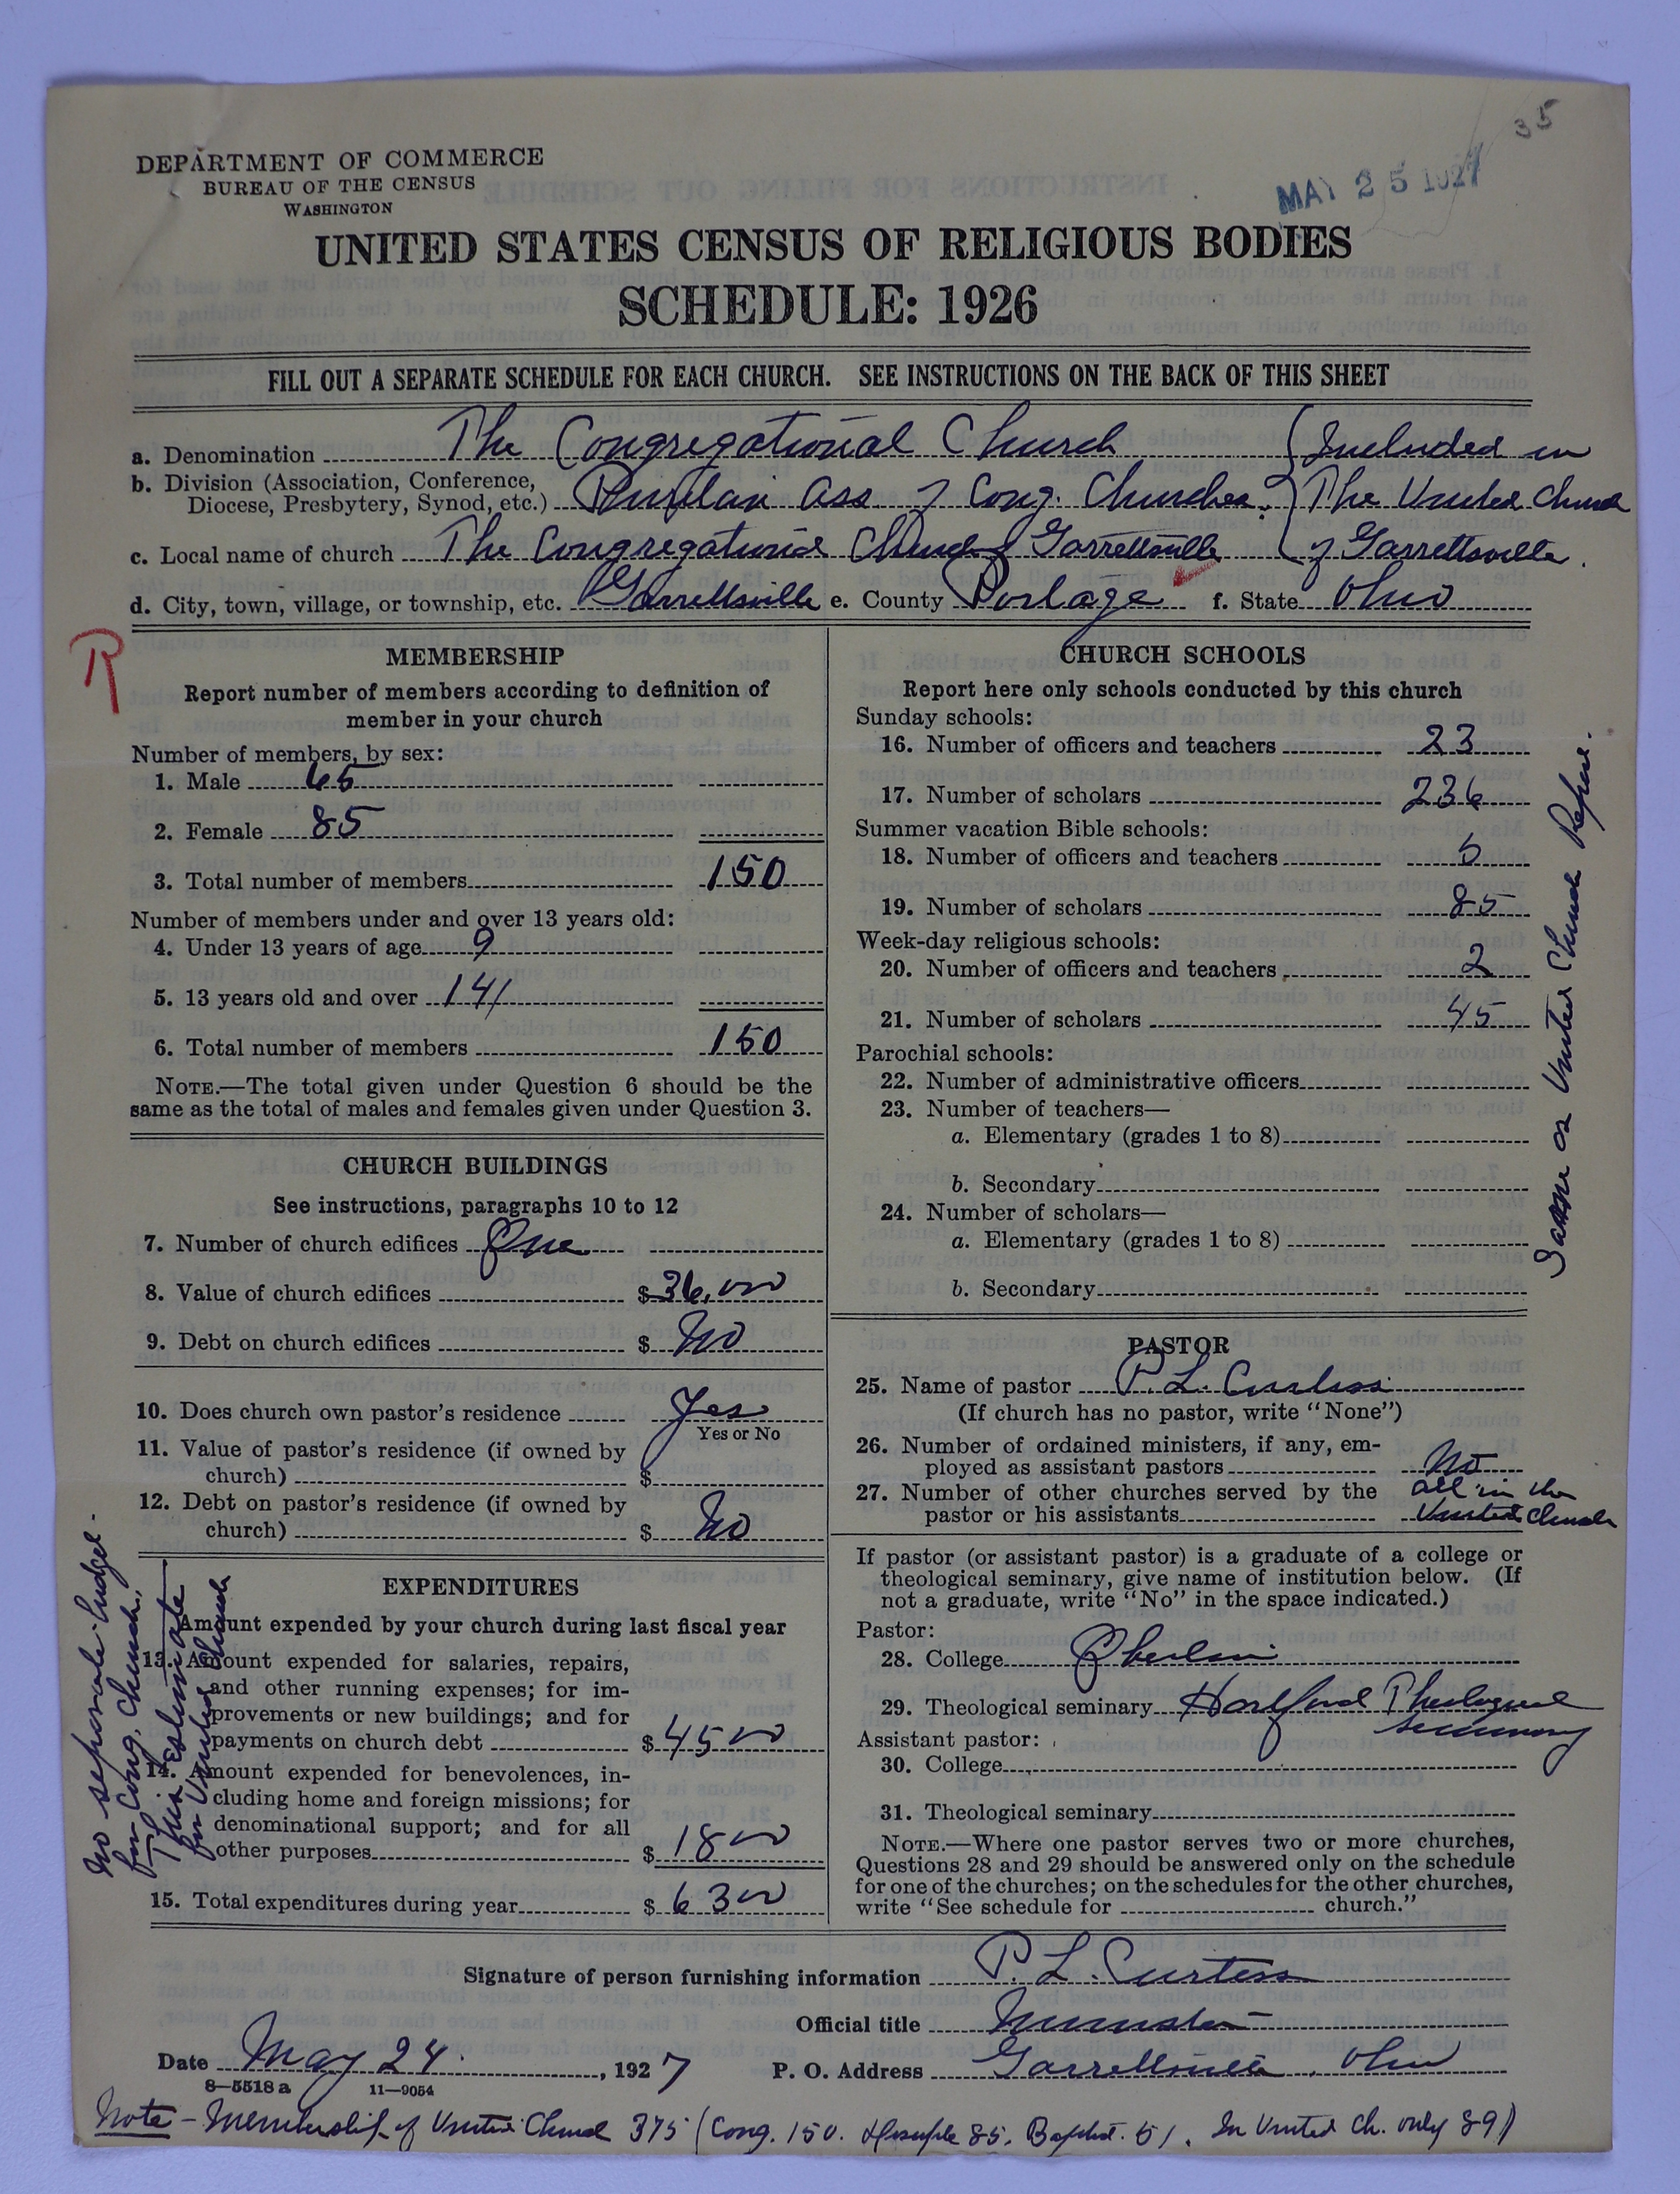 35
MAY 25 1927
DEPARTMENT OF COMMERCE
BUREAU OF THE CENSUS
WASHINGTON
UNITED STATES CENSUS OF RELIGIOUS BODIES
SCHEDULE: 1926
FILL OUT A SEPARATE SCHEDULE FOR EACH CHURCH. SEE INSTRUCTIONS ON THE BACK OF THIS SHEET
a. Denomination The Congregational Church (Included in
b. Division (Association, Conference,
Diocese, Presbytery, Synod, etc.) Puritan Ass. of Cong. Churches. The United Church
c. Local name of church The Congregational Church of Garrettsville of Garrettsville.
d. City, town, village, or township, etc. Garrettsville e. County Portage f. State Ohio
R
MEMBERSHIP
Report number of members according to definition of
member in your church
Number of members, by sex:
1. Male 65
2. Female 85
3. Total number of members 150
Number of members under and over 13 years old:
4. Under 13 years of age 9
5. 13 years old and over 141
6. Total number of members 150
NOTE.—The total given under Question 6 should be the
same as the total of males and females given under Question 3.
CHURCH BUILDINGS
See instructions, paragraphs 10 to 12
7. Number of church edifices One
8. Value of church edifices $36,000
9. Debt on church edifices $ No
10. Does church own pastor's residence Yes
Yes or No
11. Value of pastor's residence (if owned by
church) $
12. Debt on pastor's residence (if owned by
church) $ No
EXPENDITURES
Amount expended by your church during last fiscal year
13. Amount expended for salaries, repairs,
and other running expenses; for im-
provements or new buildings; and for
payments on church debt $4500
14. Amount expended for benevolences, in-
cluding home and foreign missions; for
denominational support; and for all
other purposes $1800
15. Total expenditures during year $6300
No separate budget
for Cong. Church.
This estimate
for United Church
CHURCH SCHOOLS
Report here only schools conducted by this church
Sunday schools:
16. Number of officers and teachers 23
17. Number of scholars 236
Summer vacation Bible schools:
18. Number of officers and teachers 5
19. Number of scholars 85
Week-day religious schools:
20. Number of officers and teachers 2
21. Number of scholars 45
Parochial schools:
22. Number of administrative officers
23. Number of teachers—
a. Elementary (grades 1 to 8)
b. Secondary
24. Number of scholars—
a. Elementary (grades 1 to 8)
b. Secondary
Same as United Church
PASTOR
25. Name of pastor P. L. Curtiss
(If church has no pastor, write "None")
26. Number of ordained ministers, if any, em-
ployed as assistant pastors No
27. Number of other churches served by the
pastor or his assistants all in the
United Church
If pastor (or assistant pastor) is a graduate of a college or
theological seminary, give name of institution below. (If
not a graduate, write "No" in the space indicated.)
Pastor:
28. College Oberlin
29. Theological seminary Hartford Theological
Seminary
Assistant pastor:
30. College
31. Theological seminary
NOTE.—Where one pastor serves two or more churches,
Questions 28 and 29 should be answered only on the schedule
for one of the churches; on the schedules for the other churches,
write "See schedule for church."
Signature of person furnishing information P. L. Curtiss
Official title Minister
Date May 24, 1927 P. O. Address Garrettsville, Ohio
8—5518a 11—9054
Note - Membership of United Church 375 (Cong. 150. Disciple 85. Baptist. 51. In United Ch. only 89)